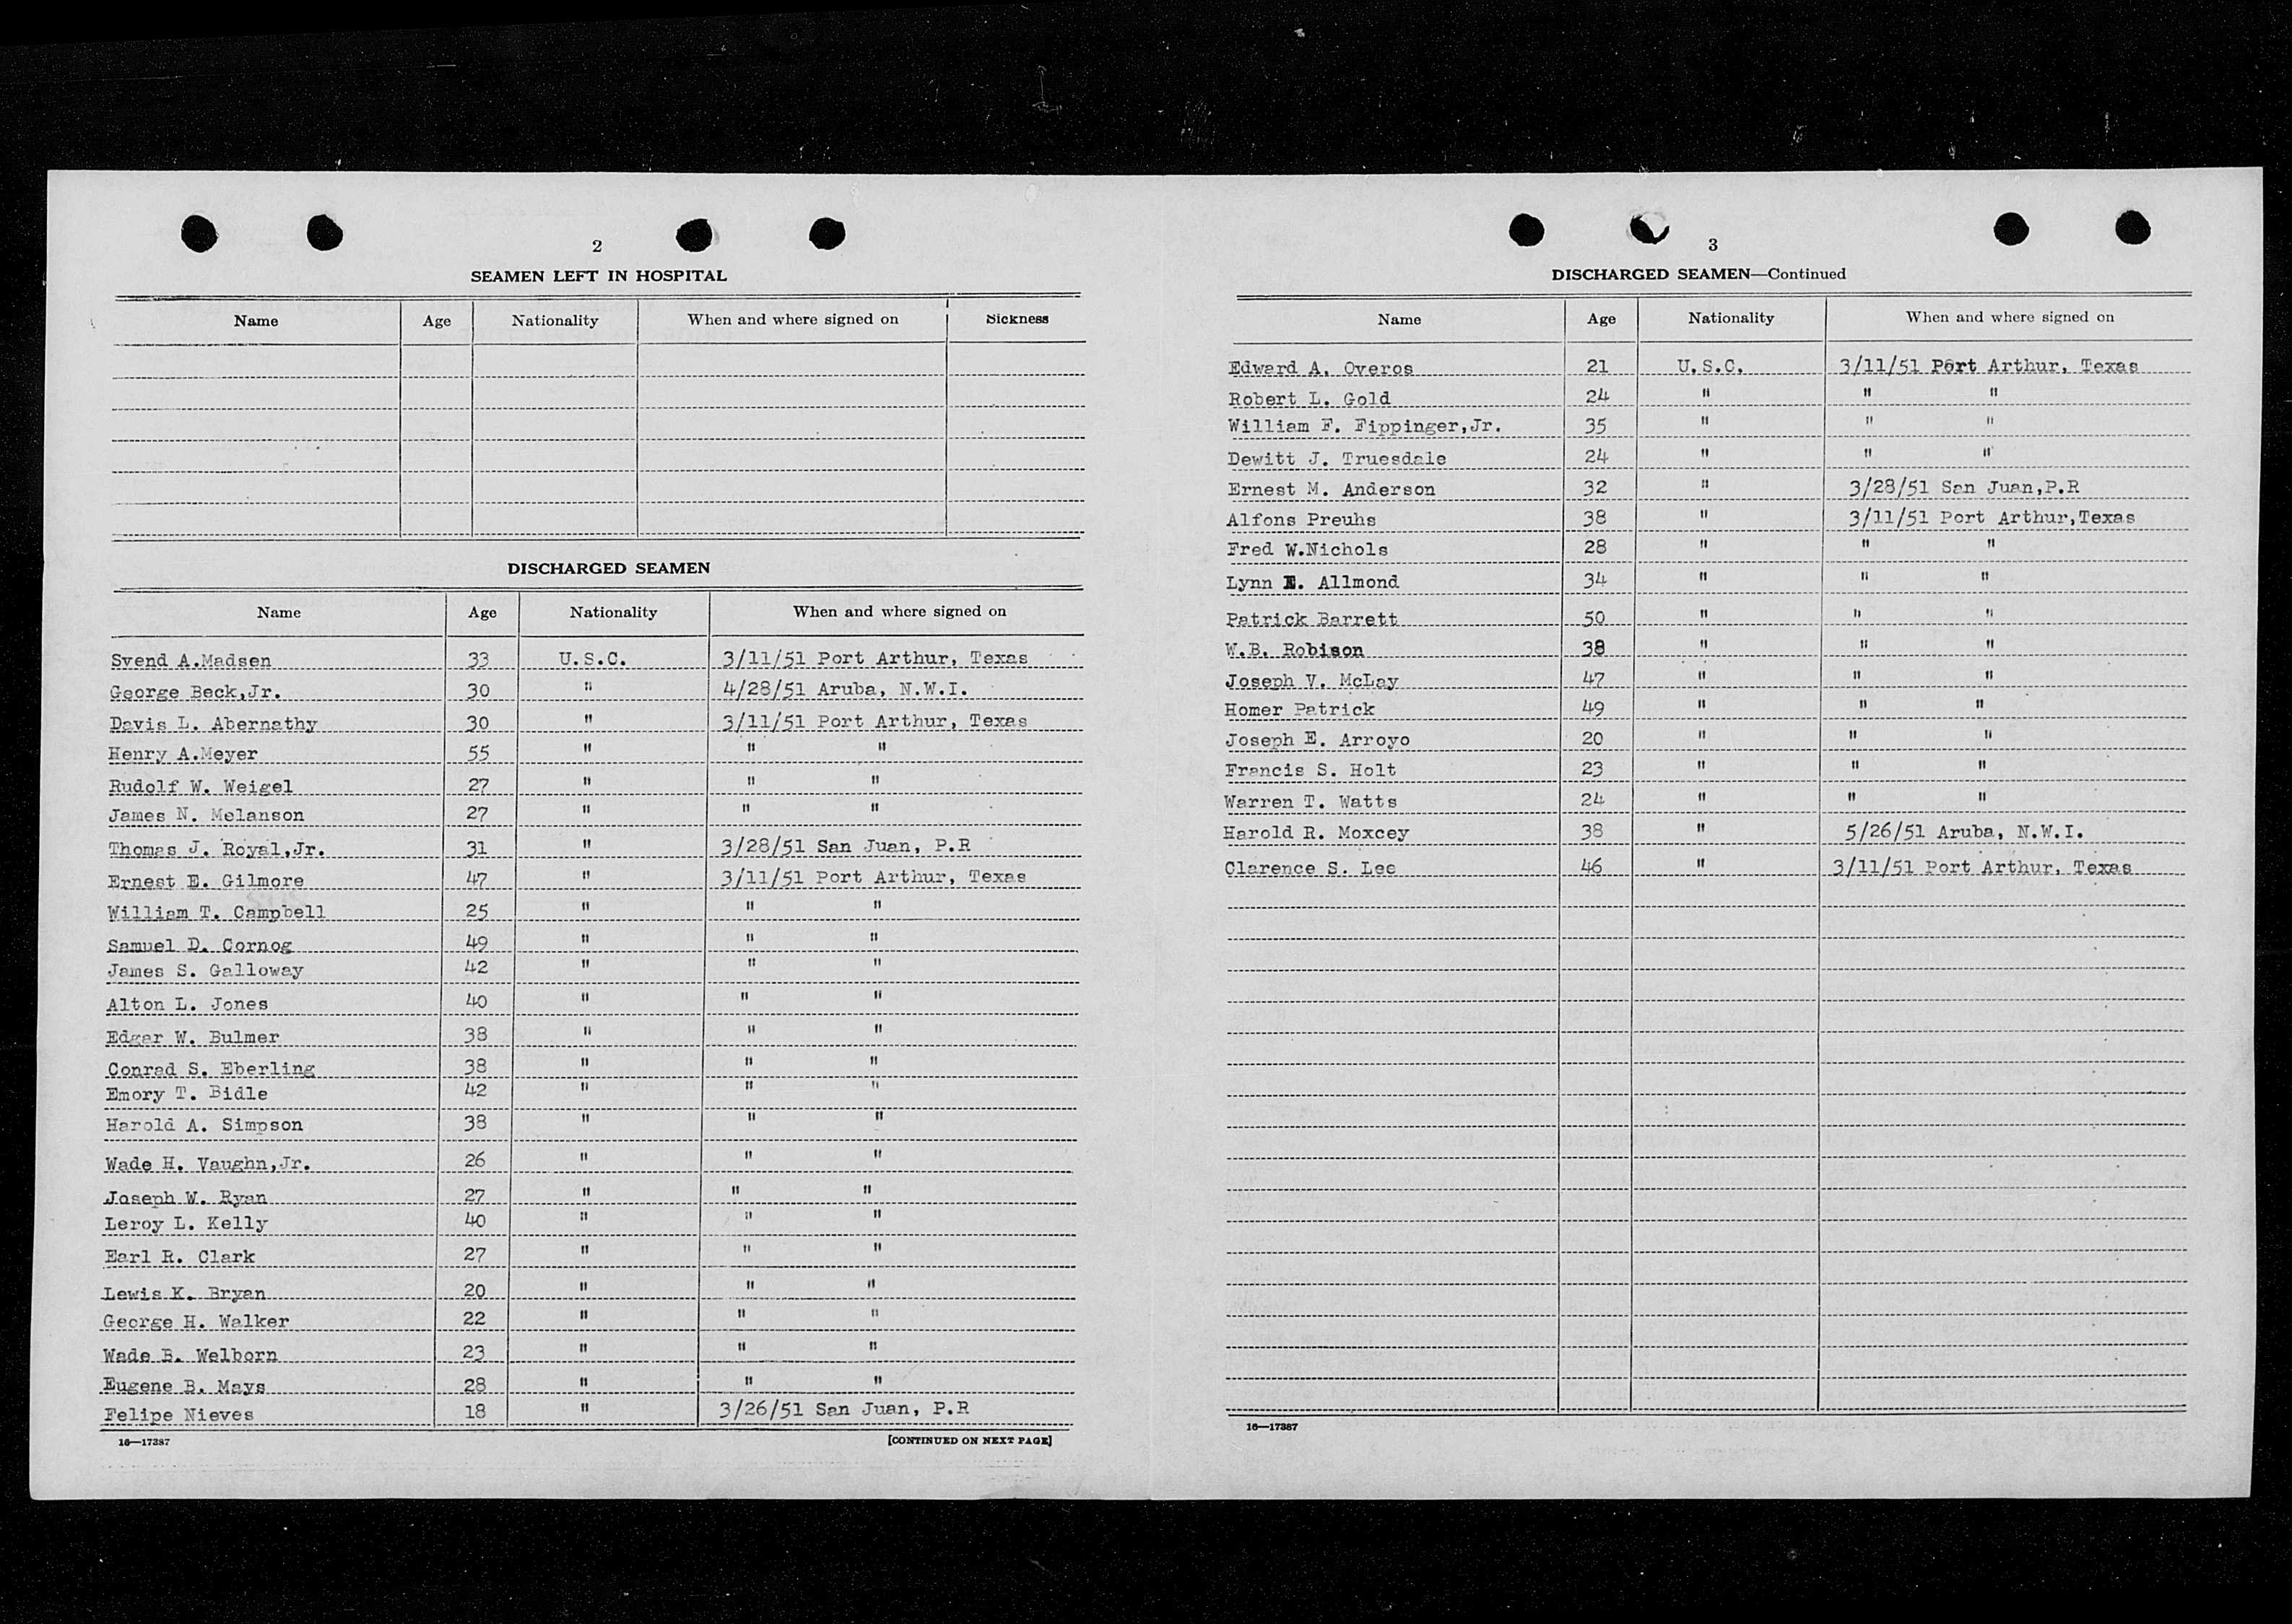 2
SEAMEN LEFT IN HOSPITAL
Name Age Nationality When and where signed on Sickness
DISCHARGED SEAMEN
Name Age Nationality When and where signed on
Svend A.Madsen 33 U.S.C. 3/11/51 Port Arthur, Texas
George Beck,Jr. 30 " 4/28/51 Aruba, N.W.I.
Davis L. Abernathy 30 " 3/11/51 Port Arthur, Texas
Henry A.Meyer 55 " " "
Rudolf W. Weigel 27 " " "
James N. Melanson 27 " " "
Thomas J. Royal,Jr. 31 " 3/28/51 San Juan, P.R
Ernest E. Gilmore 47 " 3/11/51 Port Arthur, Texas
William T. Campbell 25 " " "
Samuel D. Cornog 49 " " "
James S. Galloway 42 " " "
Alton L. Jones 40 " " "
Edgar W. Bulmer 38 " " "
Conrad S. Eberling 38 " " "
Emory T. Bidle 42 " " "
Harold A. Simpson 38 " " "
Wade H. Vaughn,Jr. 26 " " "
Joseph W. Ryan 27 " " "
Leroy L. Kelly 40 " " "
Earl R. Clark 27 " " "
Lewis K. Bryan 20 " " "
George H. Walker 22 " " "
Wade B. Welborn 23 " " "
Eugene B. Mays 28 " " "
Felipe Nieves 18 " 3/26/51 San Juan, P.R
16—17387 [CONTINUED ON NEXT PAGE]
3
DISCHARGED SEAMEN—Continued
Name Age Nationality When and where signed on
Edward A. Overos 21 U.S.C. 3/11/51 Port Arthur, Texas
Robert L. Gold 24 " " "
William F. Fippinger,Jr. 35 " " "
Dewitt J. Truesdale 24 " " "
Ernest M. Anderson 32 " 3/28/51 San Juan,P.R
Alfons Preuhs 38 " 3/11/51 Port Arthur,Texas
Fred W.Nichols 28 " " "
Lynn E. Allmond 34 " " "
Patrick Barrett 50 " " "
W.B. Robison 38 " " "
Joseph V. McLay 47 " " "
Homer Patrick 49 " " "
Joseph E. Arroyo 20 " " "
Francis S. Holt 23 " " "
Warren T. Watts 24 " " "
Harold R. Moxcey 38 " 5/26/51 Aruba, N.W.I.
Clarence S. Lee 46 " 3/11/51 Port Arthur, Texas
16—17387